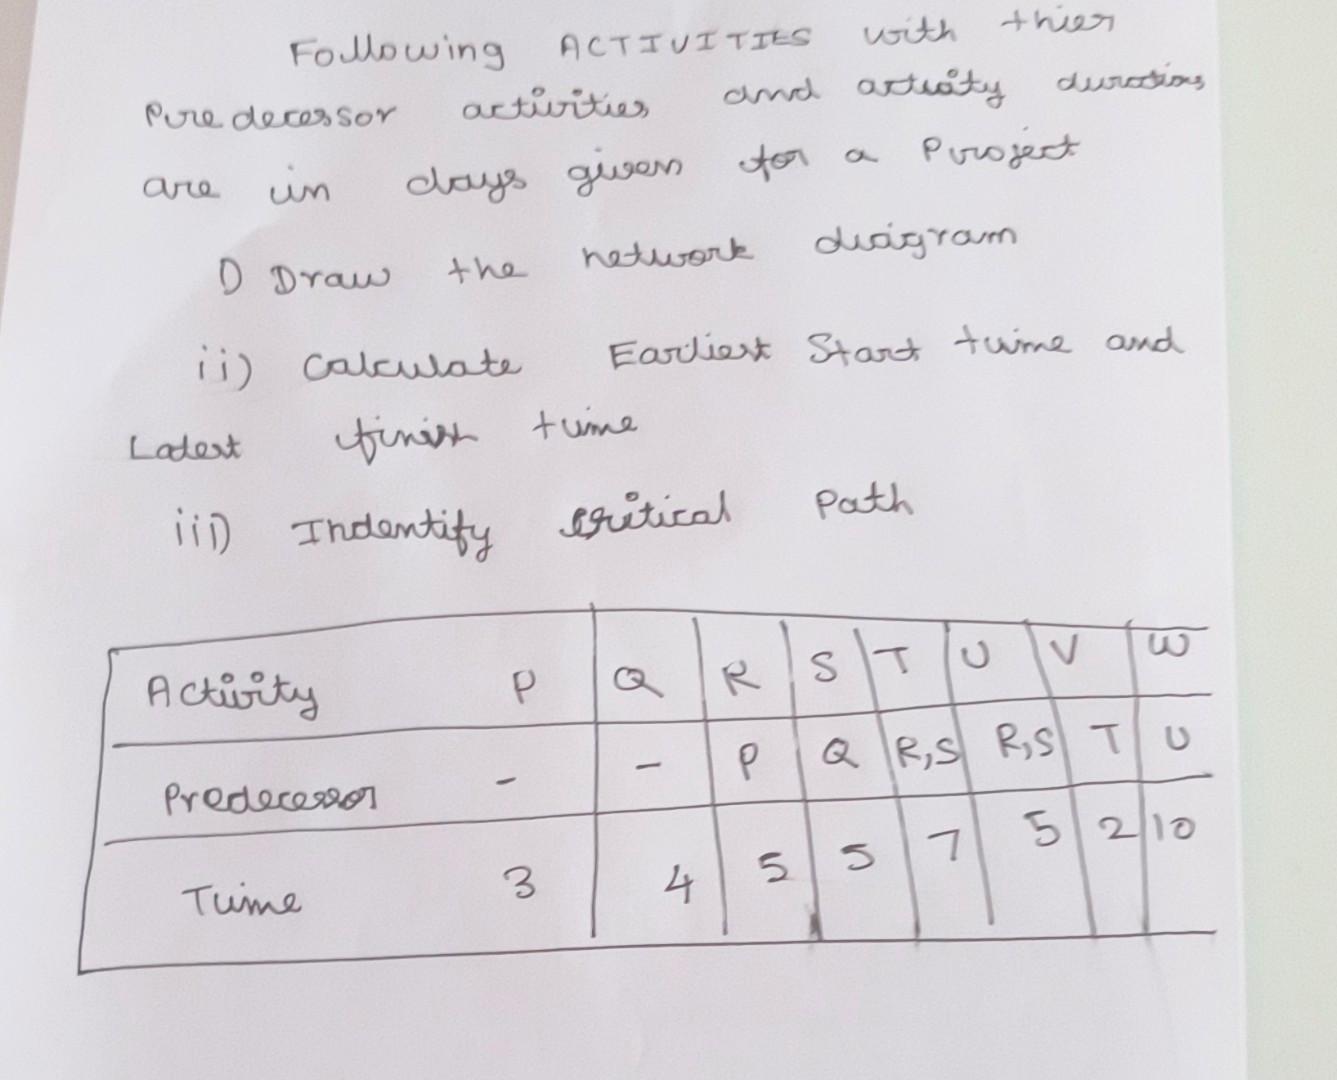 Following ACTIVITIES with thier
Predecessor activities and activity durations
are in days given for a Project
i) Draw the network diagram
ii) Calculate Earliest Start time and
Latest finish time
iii) Indentify critical Path
Activity P Q R S T U V W
Predecessor - - P Q R,S R,S T U
Time 3 4 5 5 7 5 2 10